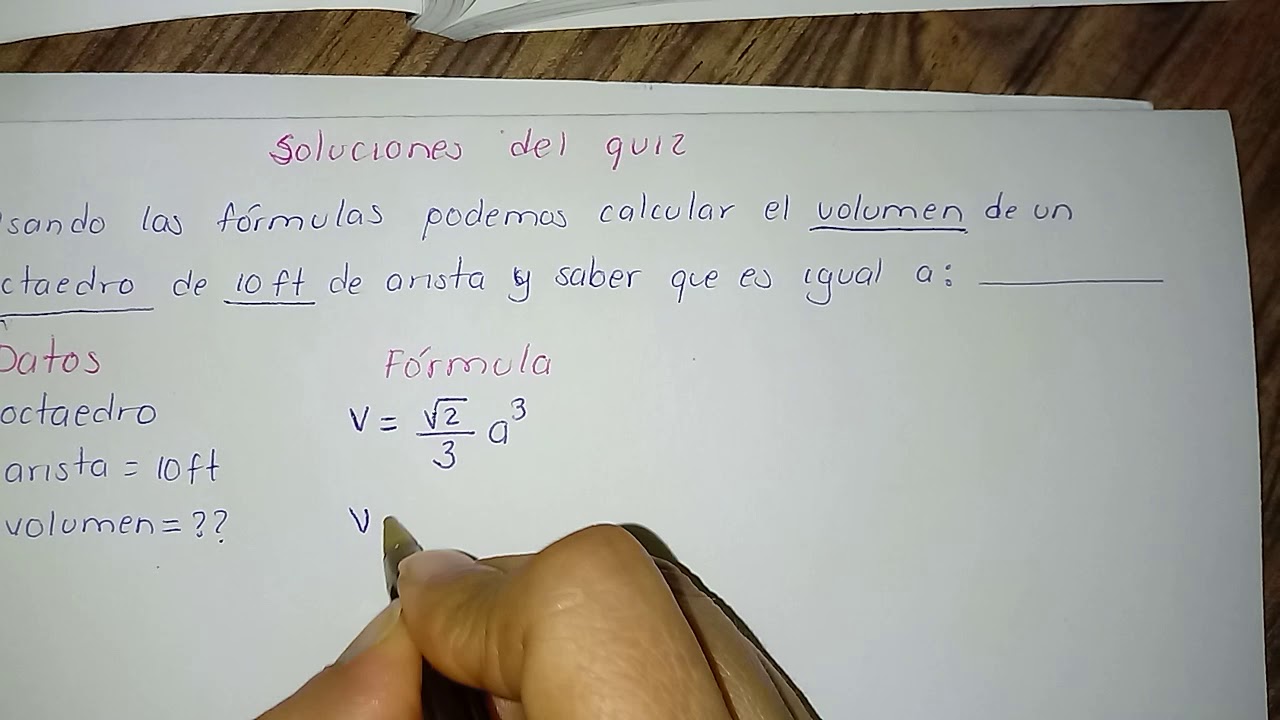 Soluciones del quiz
sando las fórmulas podemos calcular el volumen de un
ctaedro de 10ft de arista y saber que es igual a: ________
Datos Fórmula
octaedro V = √2/3 a³
arista = 10ft
volumen = ?? V